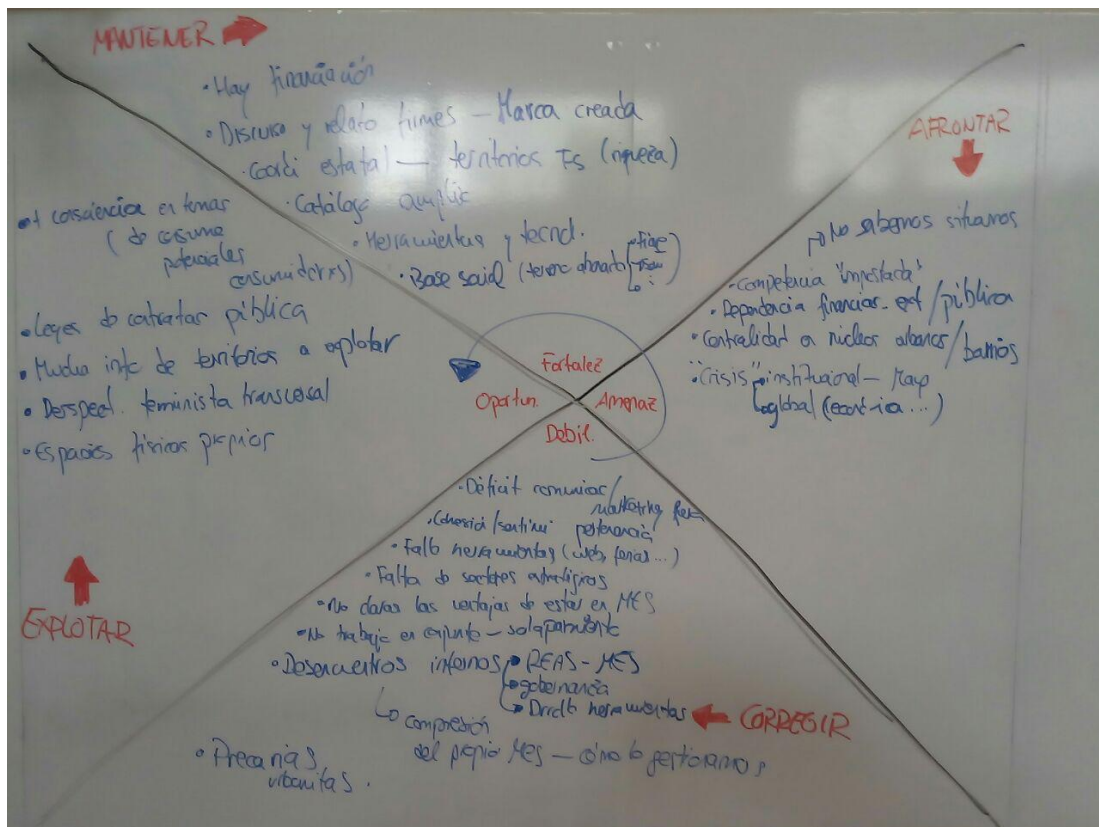 MANTENER
• Hay financiación
• Discurso y relato firmes – Marca creada
• Coordi estatal — territorios ES (riqueza)
• Catálogo amplio
• Herramientas y tecnol.
• Base social (terreno abonado
AFRONTAR
No sabemos situarnos
• Competencia "impostada"
• Dependencia financiera - ext/pública
• Centralidad en núcleos urbanos/barrios
• "Crisis" institucional – Mrap
global (ecol-ica ...)
• + consciencia en temas
(de consumo
potenciales
consumidorxs)
• Leyes de contratar pública
• Mucha info de territorios a explotar
• Perspect. feminista transversal
• Espacios físicos propios
EXPLOTAR
Fortalez
Oportun.
Amenaz
Debil.
• Déficit comunica/
marketing
• Cohesió/sentimi pertenencia
• Falta herramientas (web, ferias...)
• Falta de sectores estratégicos
• No claras las ventajas de estar en MES
• No trabajo en conjunto – solapamiento
• Desencuentros internos
• REAS - MES
• gobernanza
• herramientas
CORREGIR
comprensión
del propio MES — cómo lo gestionamos
• Precarias
urbanitas.